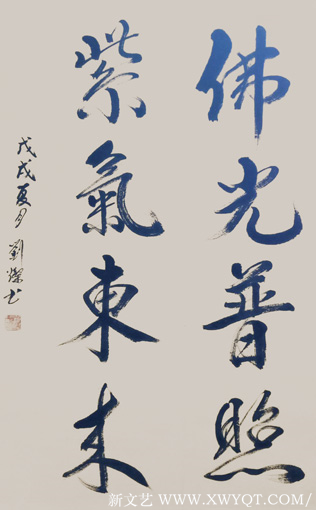 佛光普照
紫氣東来
戊戌夏月 劉燦书
新文艺 WWW.XWYQT.COM/